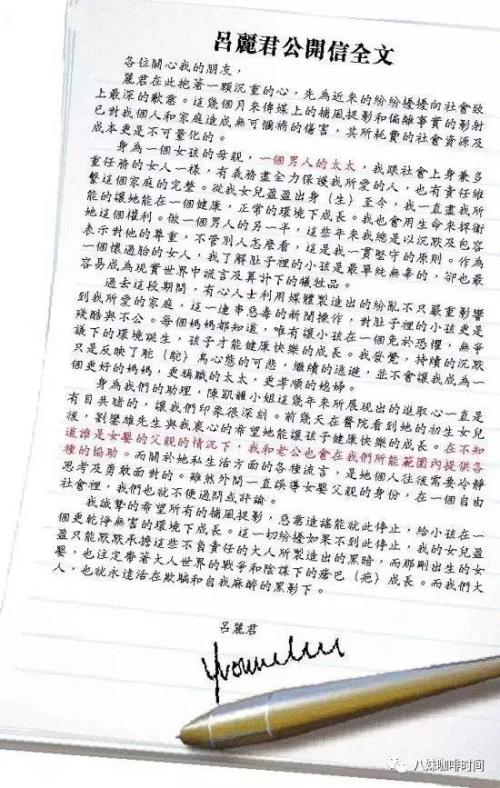 呂麗君公開信全文
各位關心我的朋友,
麗君在此抱著一顆沉重的心,先為近來的紛紛擾擾向社會致
上最深的歉意。這幾個月來傳媒上的捕風捉影和偏離事實的影射
已對我個人和家庭造成無可彌補的傷害,其所耗費的社會資源及
成本更是不可量化的。
身為一個女孩的母親,一個男人的太太,我跟社會上身兼多
重任務的女人一樣,有義務盡全力保護我所愛的人,也有責任維
繫這個家庭的完整。從我女兒盈盈出身(生)至今,我一直盡我所
能的讓她能在一個健康,正常的環境下成長。我也會用生命來捍衛
她這個權利。做一個男人的另一半,這些年來我總是以沉默及包容
表示對他的尊重,不管別人怎麼看,這是我一貫堅守的原則。作為
一個懷過胎的女人,我了解肚子裡的小孩是最單純無辜的,卻也最
容易成為現實世界中謊言及算計下的犧牲品。
過去這段期間,有心人士利用媒體製造出的紛亂不只嚴重影響
到我所愛的家庭,這一連串惡毒的新聞操作,對肚子裡的小孩更是
殘酷與不公。每個媽媽都知道,唯有讓小孩在一個免於恐懼,無爭
議下的環境誕生,孩子才能健康快樂的成長。我發覺,持續的沉默
只是反映了駝(鴕)鳥心態的可悲,繼續的逃避,並不會讓我成為一
個更好的媽媽,更稱職的太太,更孝順的媳婦。
身為我們的助理,陳凱韻小姐這幾年來所展現出的進取心一直是
有目共睹的,讓我們印象很深刻。前幾天在醫院看到她的初生女兒
後,劉鑾雄先生與我衷心的希望她能讓孩子健康快樂的成長。在不知
道誰是女嬰的父親的情況下,我和老公也會在我們所能範圍內提供各
種的協助。而關於她私生活方面的各種流言,是她個人往後需要冷靜
思考及勇敢面對的。雖然外間一直誤導女嬰父親的身份,在一個自由
社會裡,我們也就不便過問或評論。
我誠摯的希望所有的捕風捉影,惡意造謠能就此停止,給小孩在一
個更乾淨無害的環境下成長。這一切紛擾如果不到此停止,我的女兒盈
盈只能默默承擔這些不負責任的大人所製造出的黑暗,而那剛出生的女
嬰,也注定帶著大人世界的戰爭和陰謀下的瘡巴(疤)成長。而我們大
人,也就永遠活在欺騙和自我麻醉的黑影下。
呂麗君
八妹咖啡时间